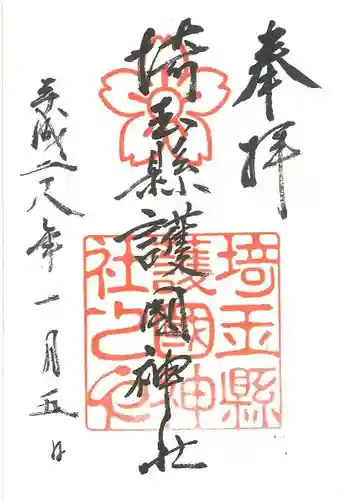 奉拝
埼玉縣護國神社
埼玉縣
護國神
社之印
平成二八年一月五日